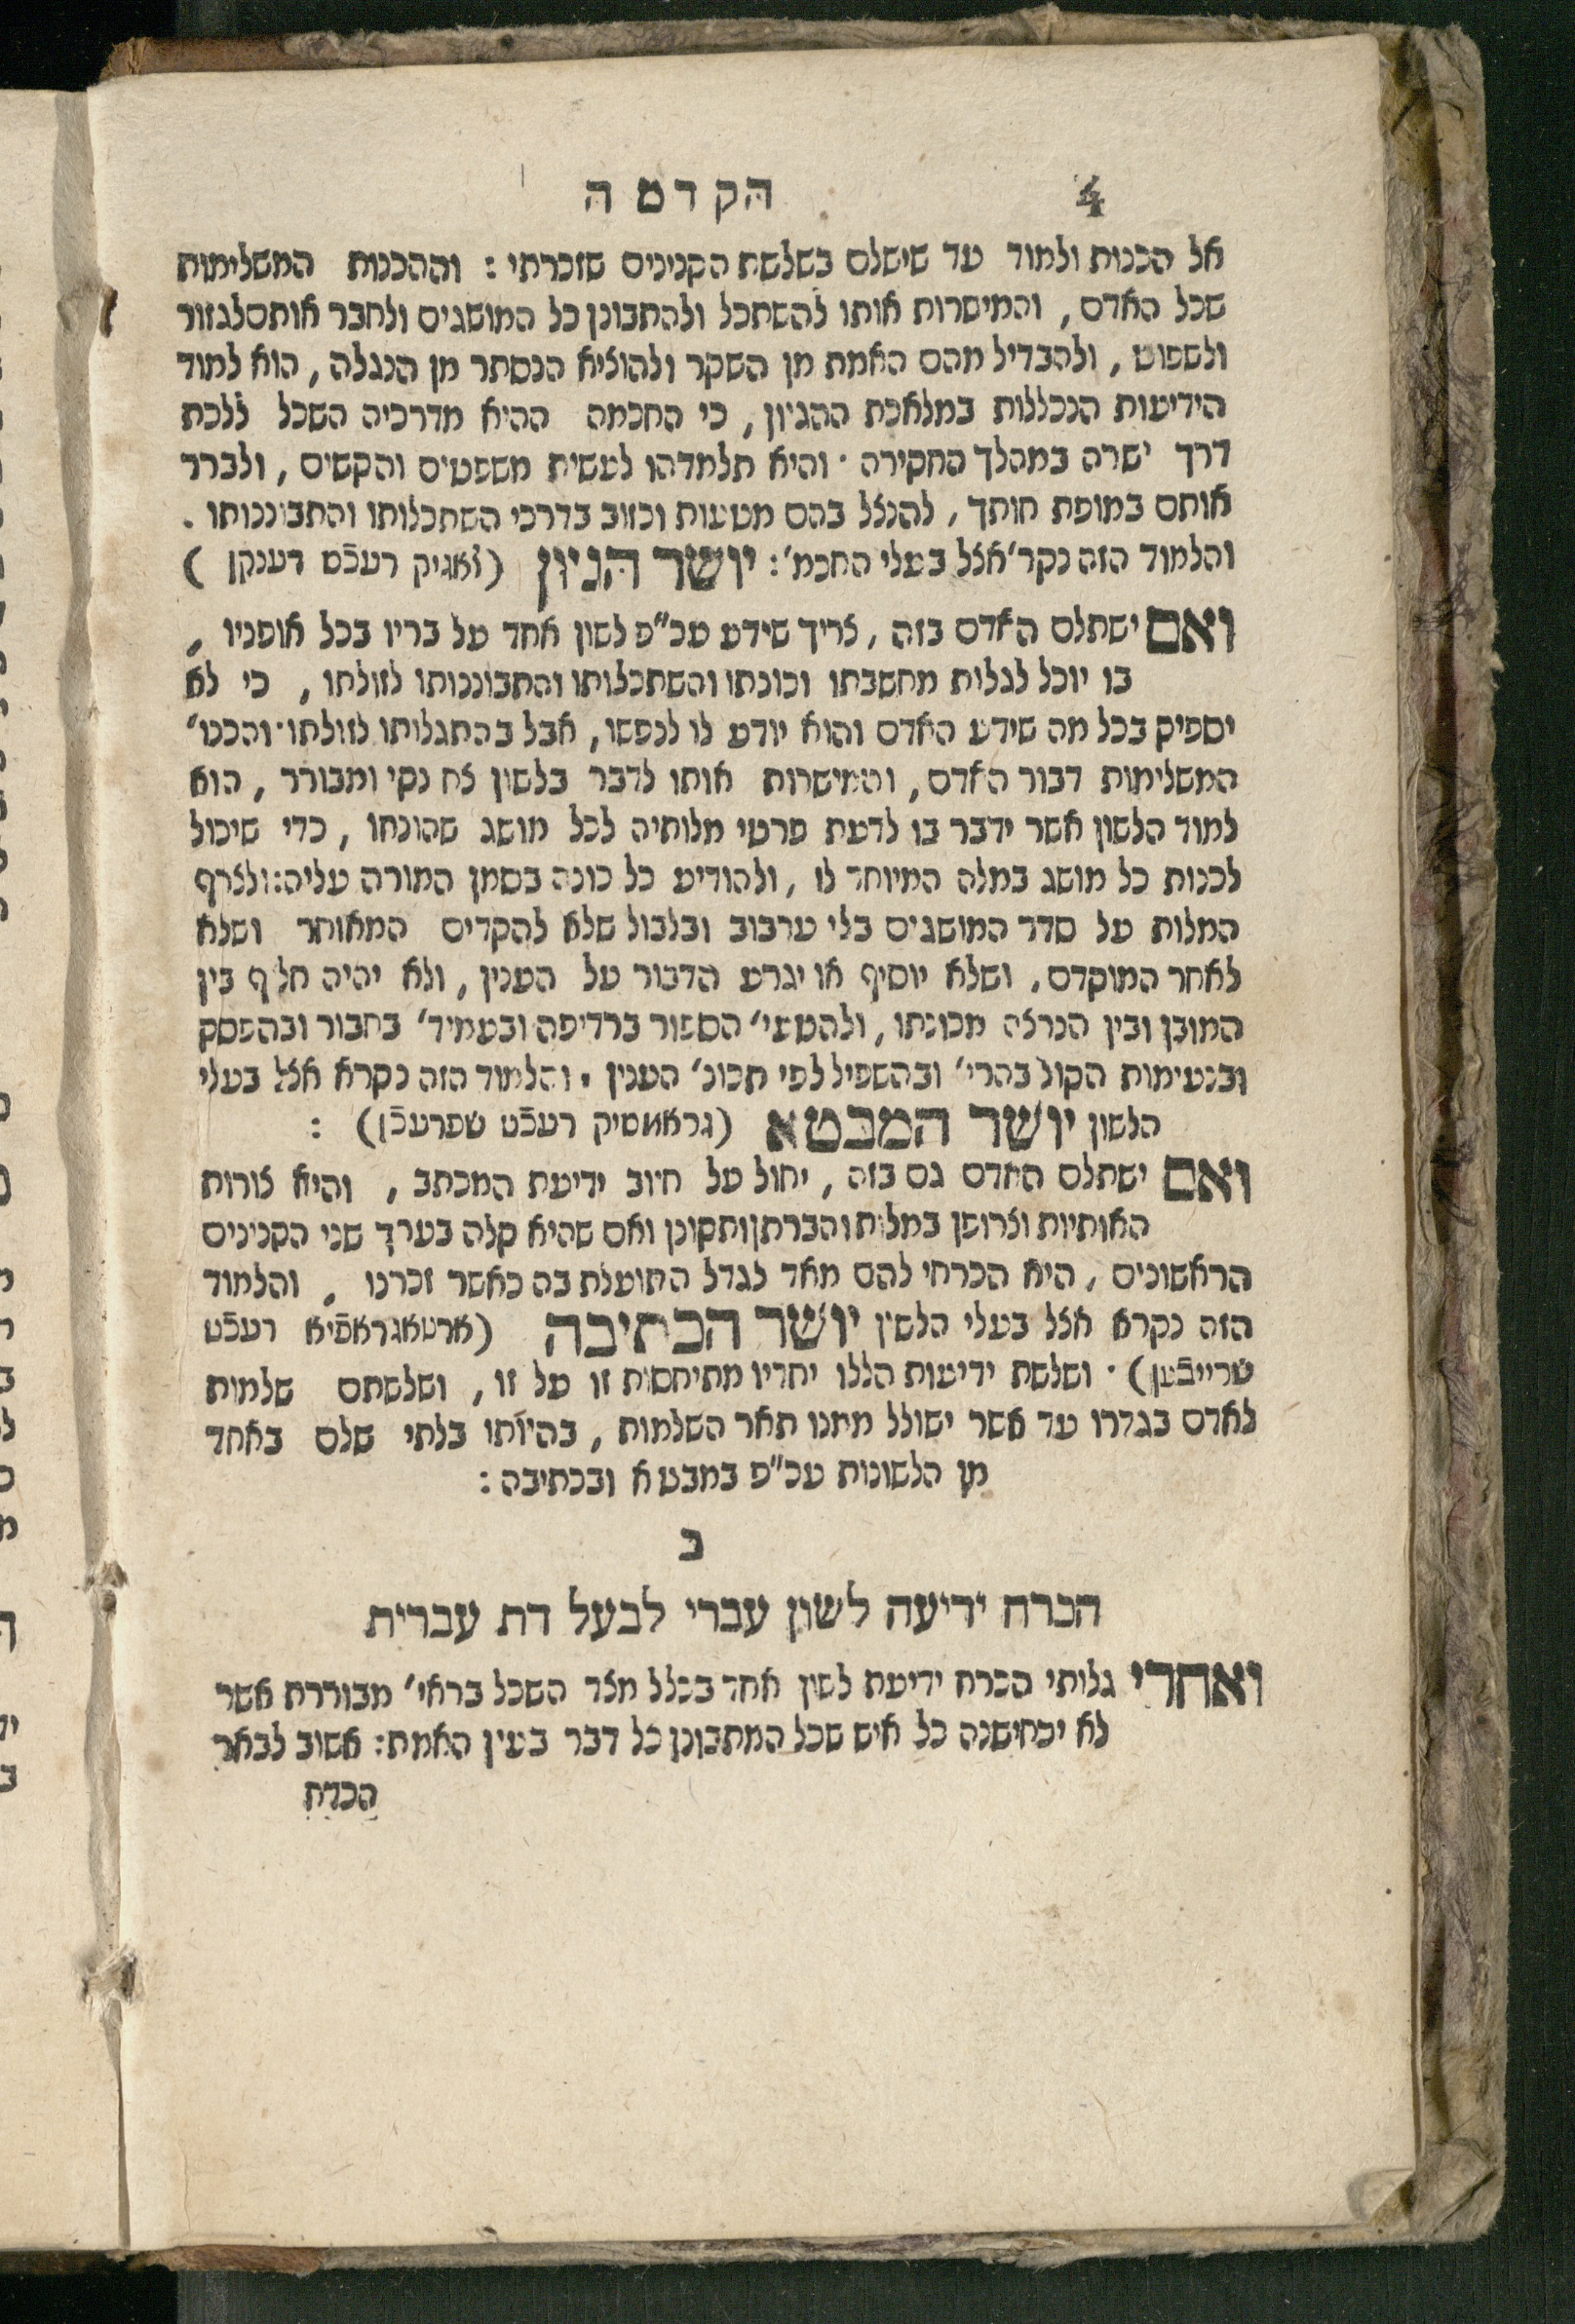 4 הקדמה
אל הכנות ולמוד עד שישלם בשלשת הקנינים שזכרתי : וההכנות המשלימות
שכל האדם , והמישרות אותו להשתכל ולהתבונן כל המושגים ולחבר אותם לגזור
ולשפוט , ולהבדיל מהם האמת מן השקר ולהוציא הנסתר מן הנגלה , הוא למוד
הידיעות הנכללות במלאכת ההגיון , כי החכמה ההיא מדרכיה השכל ללכת
דרך ישרה במהלך החקירה · והיא תלמדהו לעשית משפטים והקשים , ולברר
אותם במופת חותך , להנצל בהם מטעות וכזוב בדרכי השתכלותו והתבוננותו .
והלמוד הזה נקר' אצל בעלי החכמ' : יושר הגיון (לאגיק רעכֿט דענקן )
ואם ישתלם האדם בזה , צריך שידע עכ"פ לשון אחד על בריו בכל אופניו ,
בו יוכל לגלות מחשבתו וכונתו והשתכלותו והתבוננותו לזולתו , כי לא
יספיק בכל מה שידע האדם והוא יודע לו לנפשו , אבל בהתגלותו לזולתו · והכנו'
המשלימות דבור האדם , והמישרות אותו לדבר בלשון צח נקי ומבורר , הוא
למוד הלשון אשר ידבר בו לדעת פרטי מלותיה לכל מושג שהונחו , כדי שיכול
לכנות כל מושג במלה המיוחד לו , ולהודיע כל כונה בסמן המורה עליה : ולצרף
המלות על סדר המושגים בלי ערבוב ובלבול שלא להקדים המאוחר ושלא
לאחר המוקדם . ושלא יוסיף או יגרע הדבור על הענין , ולא יהיה חלוף בין
המובן ובין הנרצה מכונתו , ולהטעי' הספור ברדיפה ובעמיד' בחבור ובהפסק
ובנעימות הקול בהרי' ובהשפיל לפי תכונ' הענין . והלמוד הזה נקרא אצל בעלי
הלשון יושר המבטא (גראמטיק רעכֿט שפרעכֿן) :
ואם ישתלם האדם גם בזה , יחול על חיוב ידיעת המכתב , והיא צורות
האותיות וצרופן במלות והברתן ותקונן ואם שהיא קלה בערך שני הקנינים
הראשונים , היא הכרחי להם מאד לגדל התועלת בה כאשר זכרנו , והלמוד
הזה נקרא אצל בעלי הלשון יושר הכתיבה (ארטאגראפֿיא רעכֿט
שרייבֿען) · ושלשת ידיעות הללו יחדיו מתיחסות זו על זו , ושלשתם שלמות
לאדם בגדרו עד אשר ישולל ממנו תאר השלמות , בהיותו בלתי שלם באחד
מן הלשונות עכ"פ במבטא ובכתיבה :
ב
הכרח ידיעה לשון עברי לבעל דת עברית
ואחרי גלותי הכרח ידיעת לשון אחד בכלל מצד השכל בראי' מבוררת אשר
לא יכחישנה כל איש שכל המתבונן כל דבר בעין האמת : אשוב לבאר
הכרח